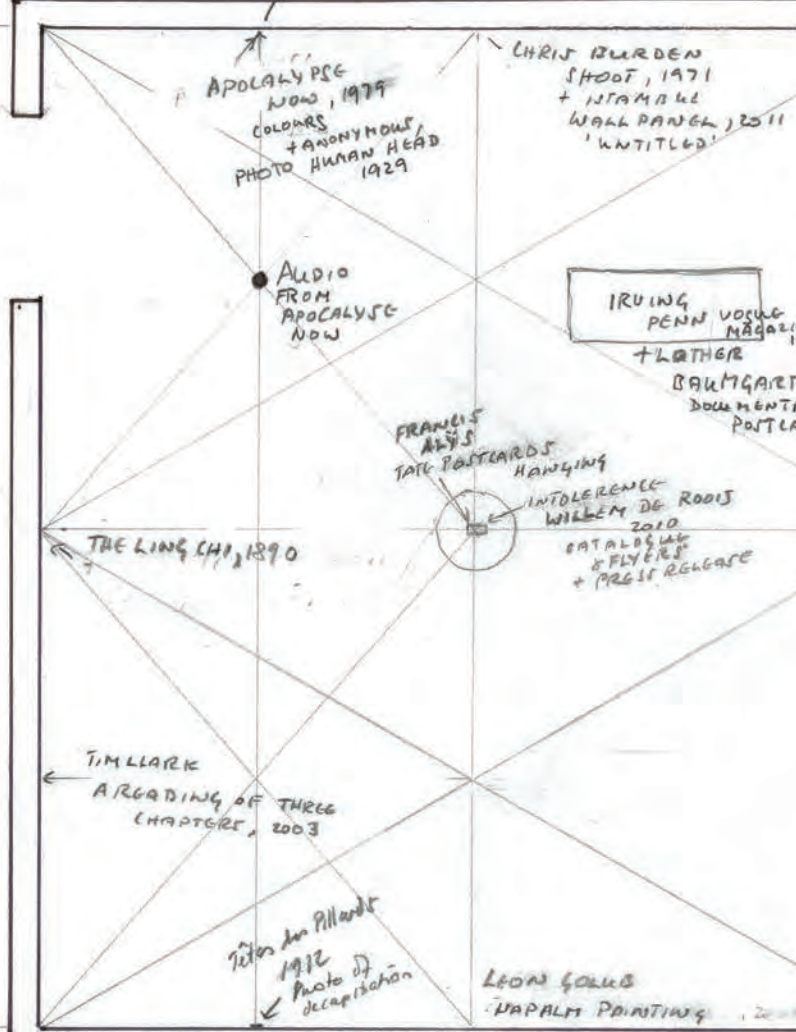 APOCALYPSE
NOW, 1979
COLOURS
+ ANONYMOUS,
PHOTO HUMAN HEAD
1929
CHRIS BURDEN
SHOOT, 1971
+ ISTAMBUL
WALL PANEL, 2011
'UNTITLED'
AUDIO
FROM
APOCALYSE
NOW
IRVING
PENN VOGUE
+ LOTHER
FRANCIS
ALŸS
TATE POSTCARDS
HANGING
INTOLERENCE
WILLEM DE ROOIJ
2010
CATALOGUE
& FLYERS
+ PRESS RELEASE
THE LING CHI, 1890
TIM CLARK
A READING OF THREE
CHAPTERS, 2003
Têtes des Pillards
1912
Photo of
decapitation
LEON GOLUB
NAPALM PAINTING